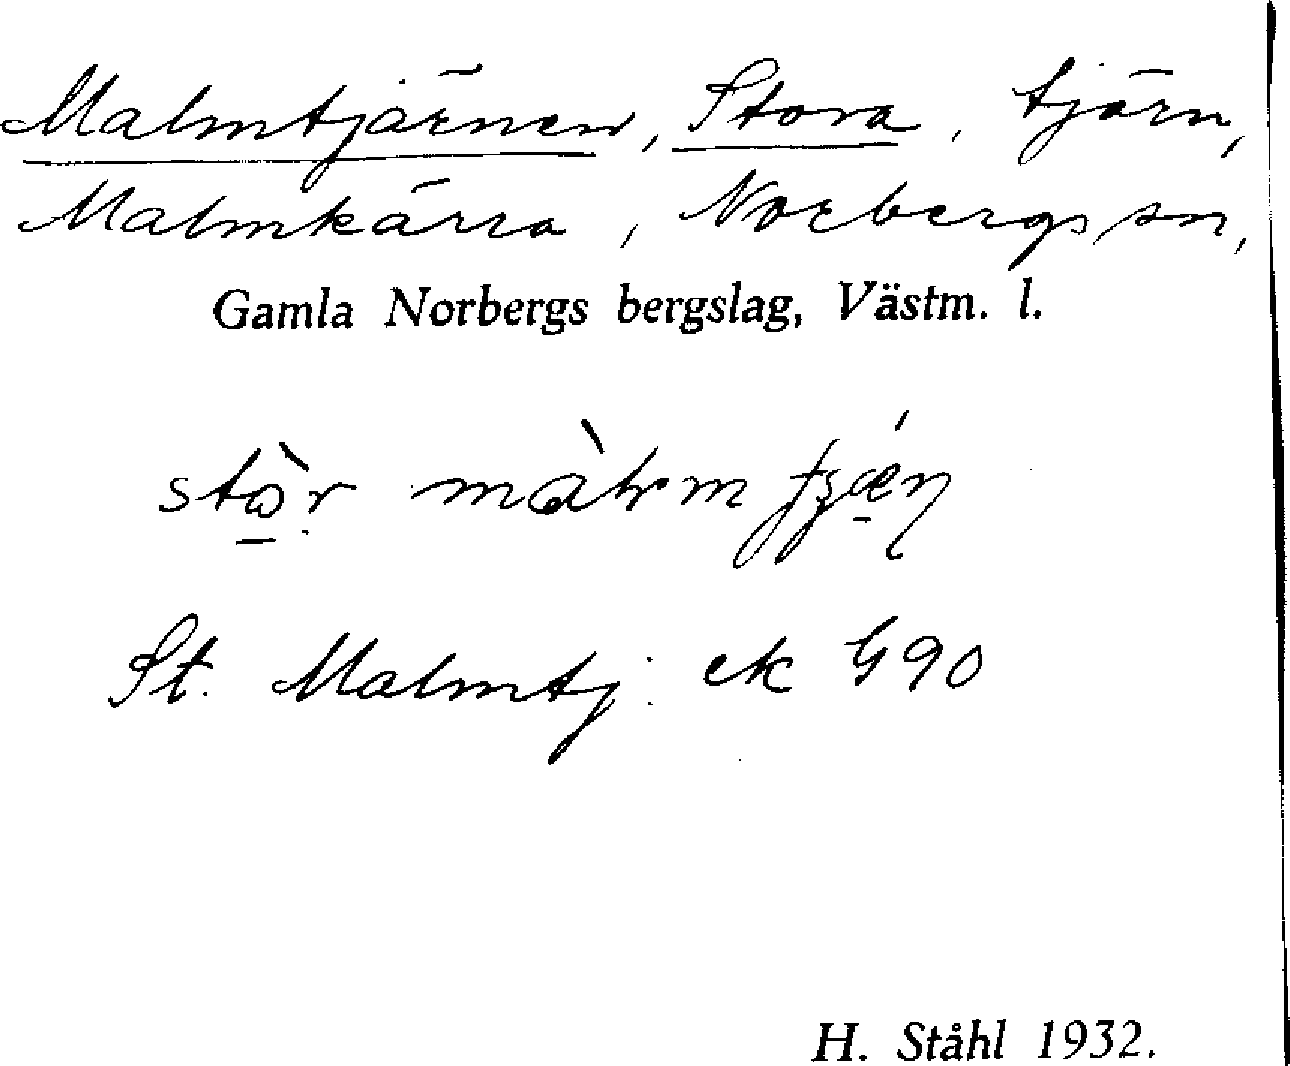 Malmtjärnen, Stora, tjärn,
Malmkärra, Norbergs sn,
Gamla Norbergs bergslag, Västm. l.
stòr
St. Malmtj. ek G 90
H. Ståhl 1932.